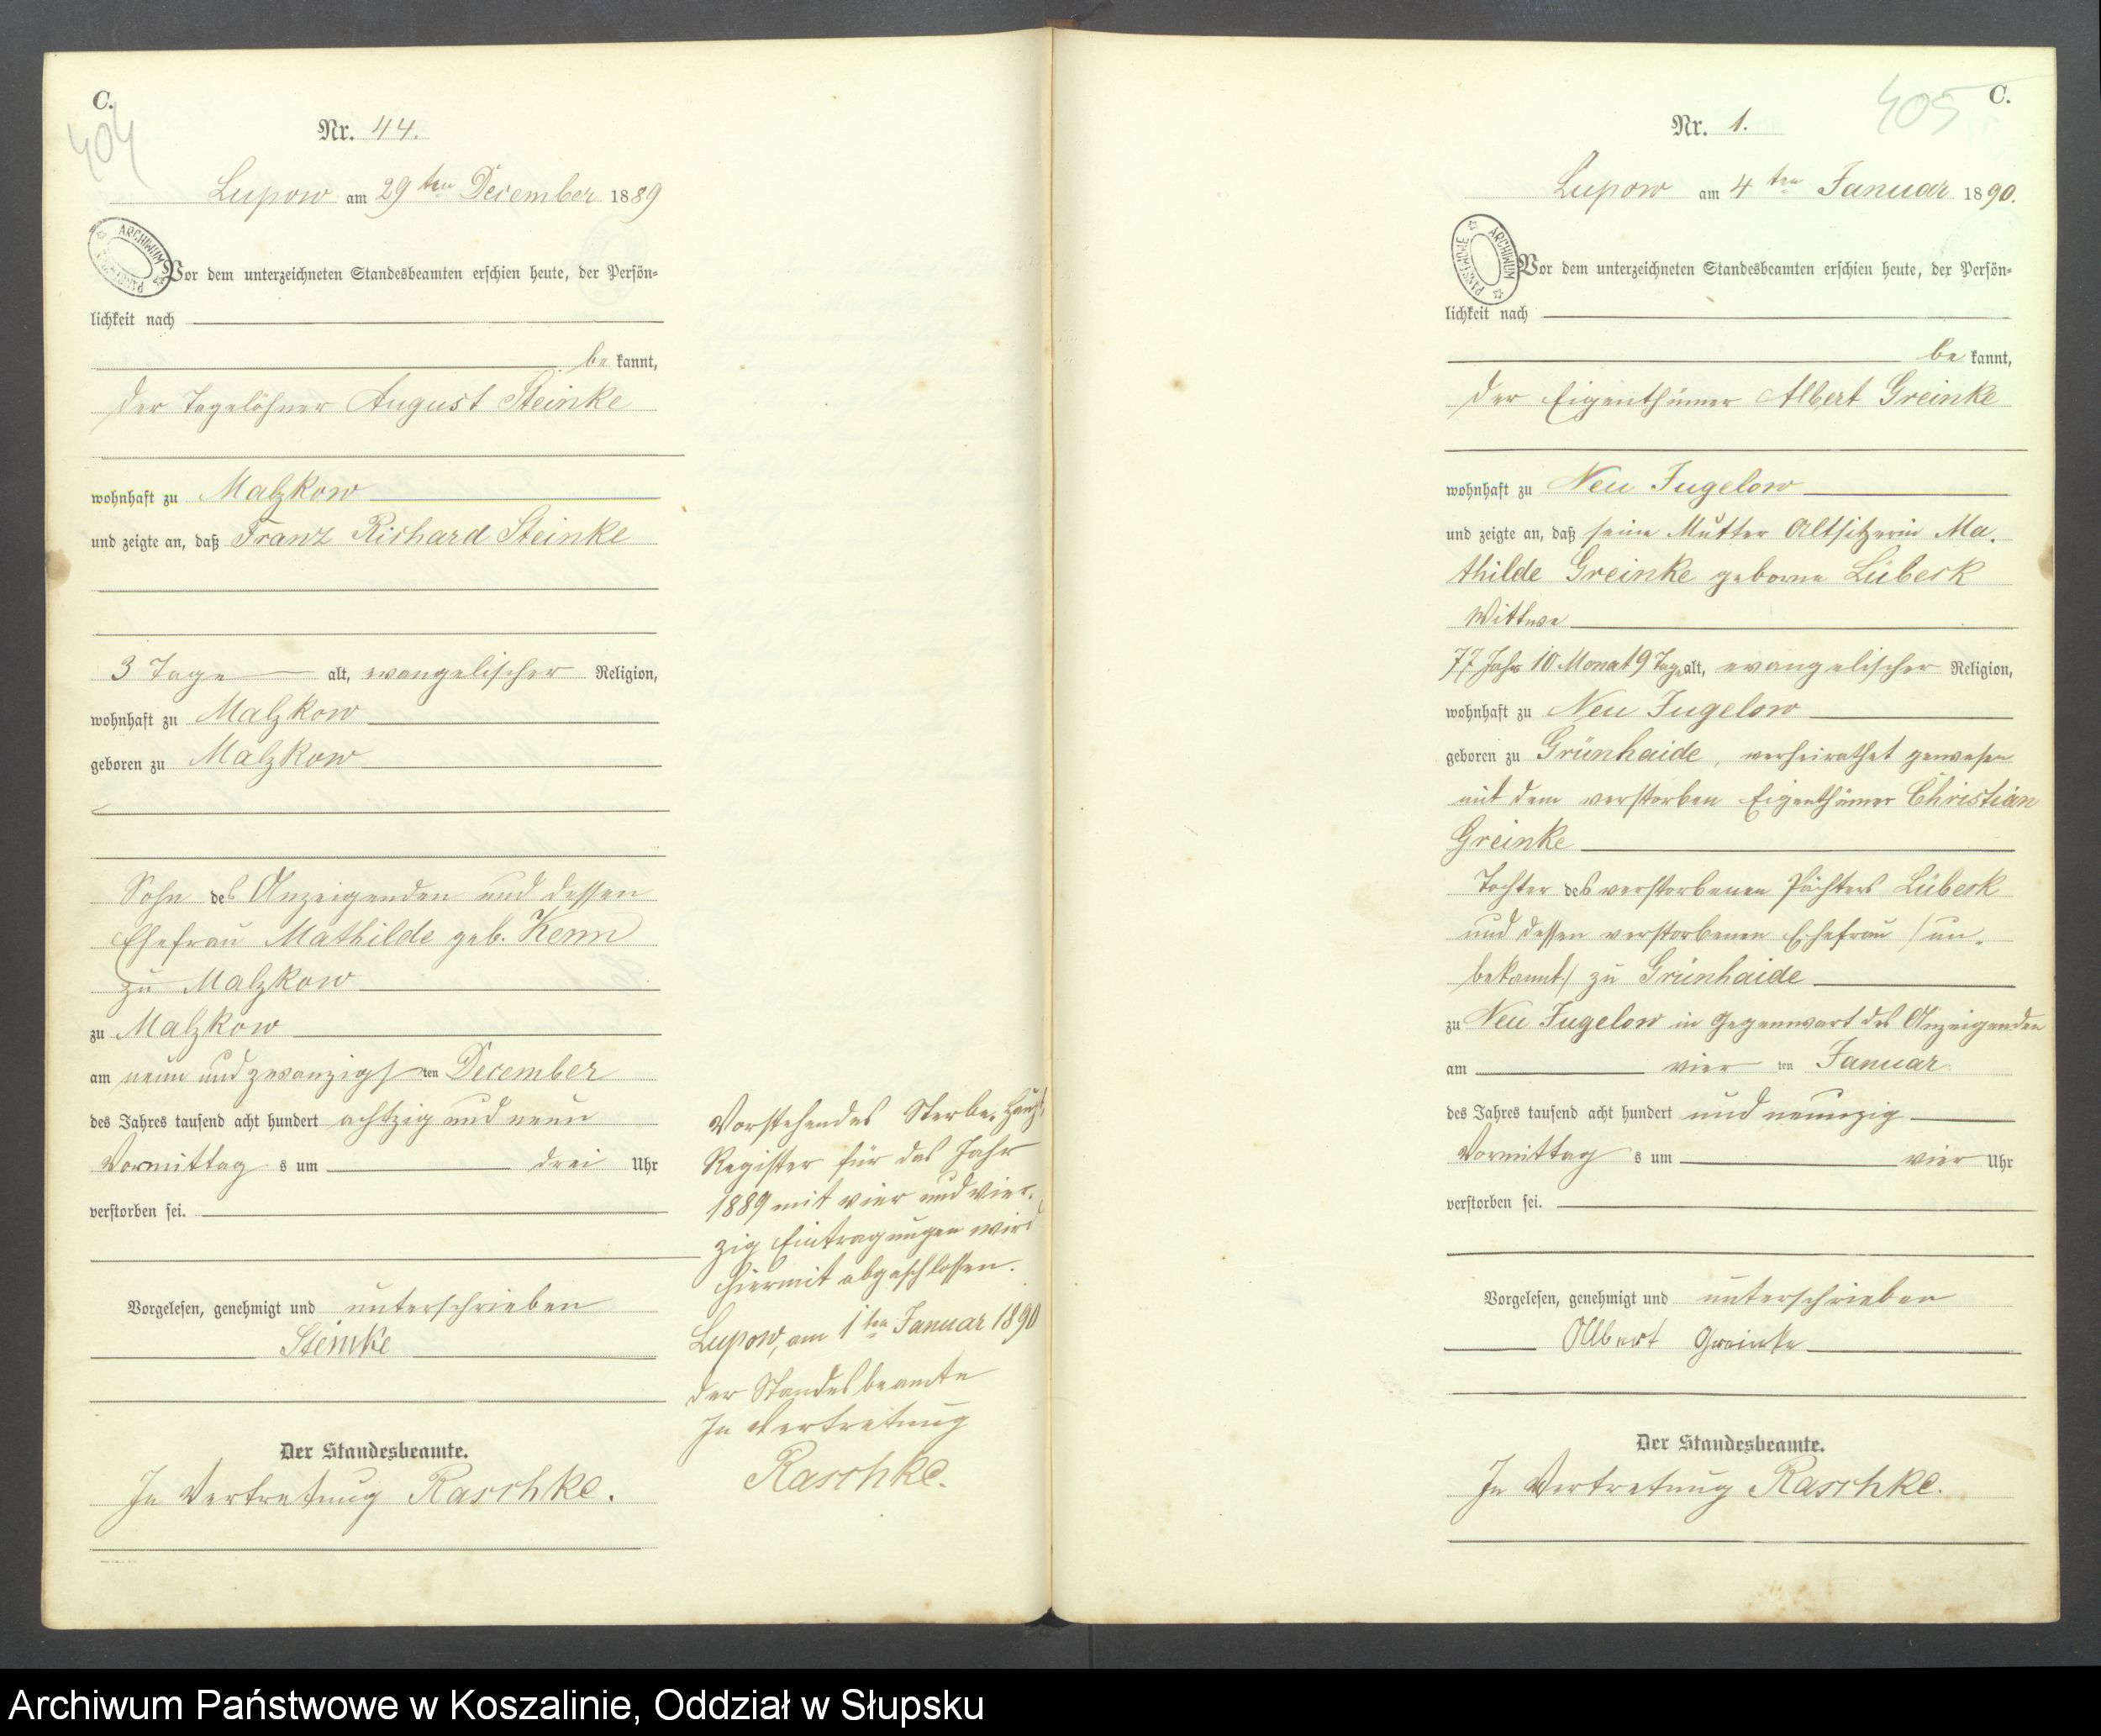 C.
404
Nr. 44.
Lupow am 29ten December 1889
ARCHIWUM PAŃSTWOWE
Vor dem unterzeichneten Standesbeamten erschien heute, der Persön=
lichkeit nach
be kannt,
der Tagelöhner August Steinke
wohnhaft zu Malzkow
und zeigte an, daß Franz Richard Steinke
3 Tage alt, evangelischer Religion,
wohnhaft zu Malzkow
geboren zu Malzkow
Sohn des Anzeigenden und dessen
Ehefrau Mathilde geb.
zu Malzkow
zu Malzkow
am neun und zwanzigsten December
des Jahres tausend acht hundert achtzig und neun
Vormittag s um drei Uhr
verstorben sei.
Vorgelesen, genehmigt und unterschrieben
Steinke
Der Standesbeamte.
In Vertretung Raschke.
Vorstehendes Sterbe-Haupt-
Register für das Jahr
1889 mit vier und vier-
zig Eintragungen wird
hiermit abgeschlossen.
Lupow, am 1ten Januar 1890
Der Standesbeamte
In Vertretung
Raschke.
C.
405
Nr. 1.
Lupow am 4ten Januar 1890.
ARCHIWUM PAŃSTWOWE
Vor dem unterzeichneten Standesbeamten erschien heute, der Persön=
lichkeit nach
be kannt,
der Eigenthümer Albert Greinke
wohnhaft zu Neu Jugelow
und zeigte an, daß seine Mutter Altsitzerin Ma-
thilde Greinke geborne Lübeck
Wittwe
77 Jahr 10 Monat 9 Tage alt, evangelischer Religion,
wohnhaft zu Neu Jugelow
geboren zu Grünhaide, verheirathet gewesen
mit dem verstorben Eigenthümer Christian
Greinke
Tochter des verstorbenen Pächters Lübeck
und dessen verstorbenen Ehefrau /:un-
bekannt:/ zu Grünhaide
zu Neu Jugelow in Gegenwart des Anzeigenden
am vier ten Januar
des Jahres tausend acht hundert und neunzig
Vormittag s um vier Uhr
verstorben sei.
Vorgelesen, genehmigt und unterschrieben
Albert Greinke
Der Standesbeamte.
In Vertretung Raschke.
Archiwum Państwowe w Koszalinie, Oddział w Słupsku